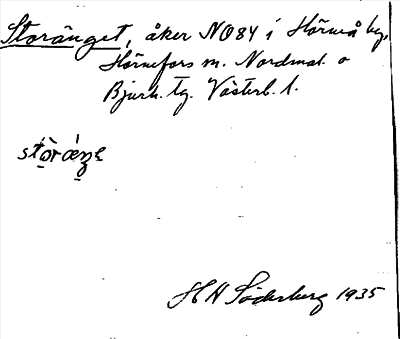 Storänget, åker NO84 i Hörneå by,
Hörnefors m. Nordmal. o
Bjurh. tg. Västerb. l.
störæŋe
H N Söderberg 1935